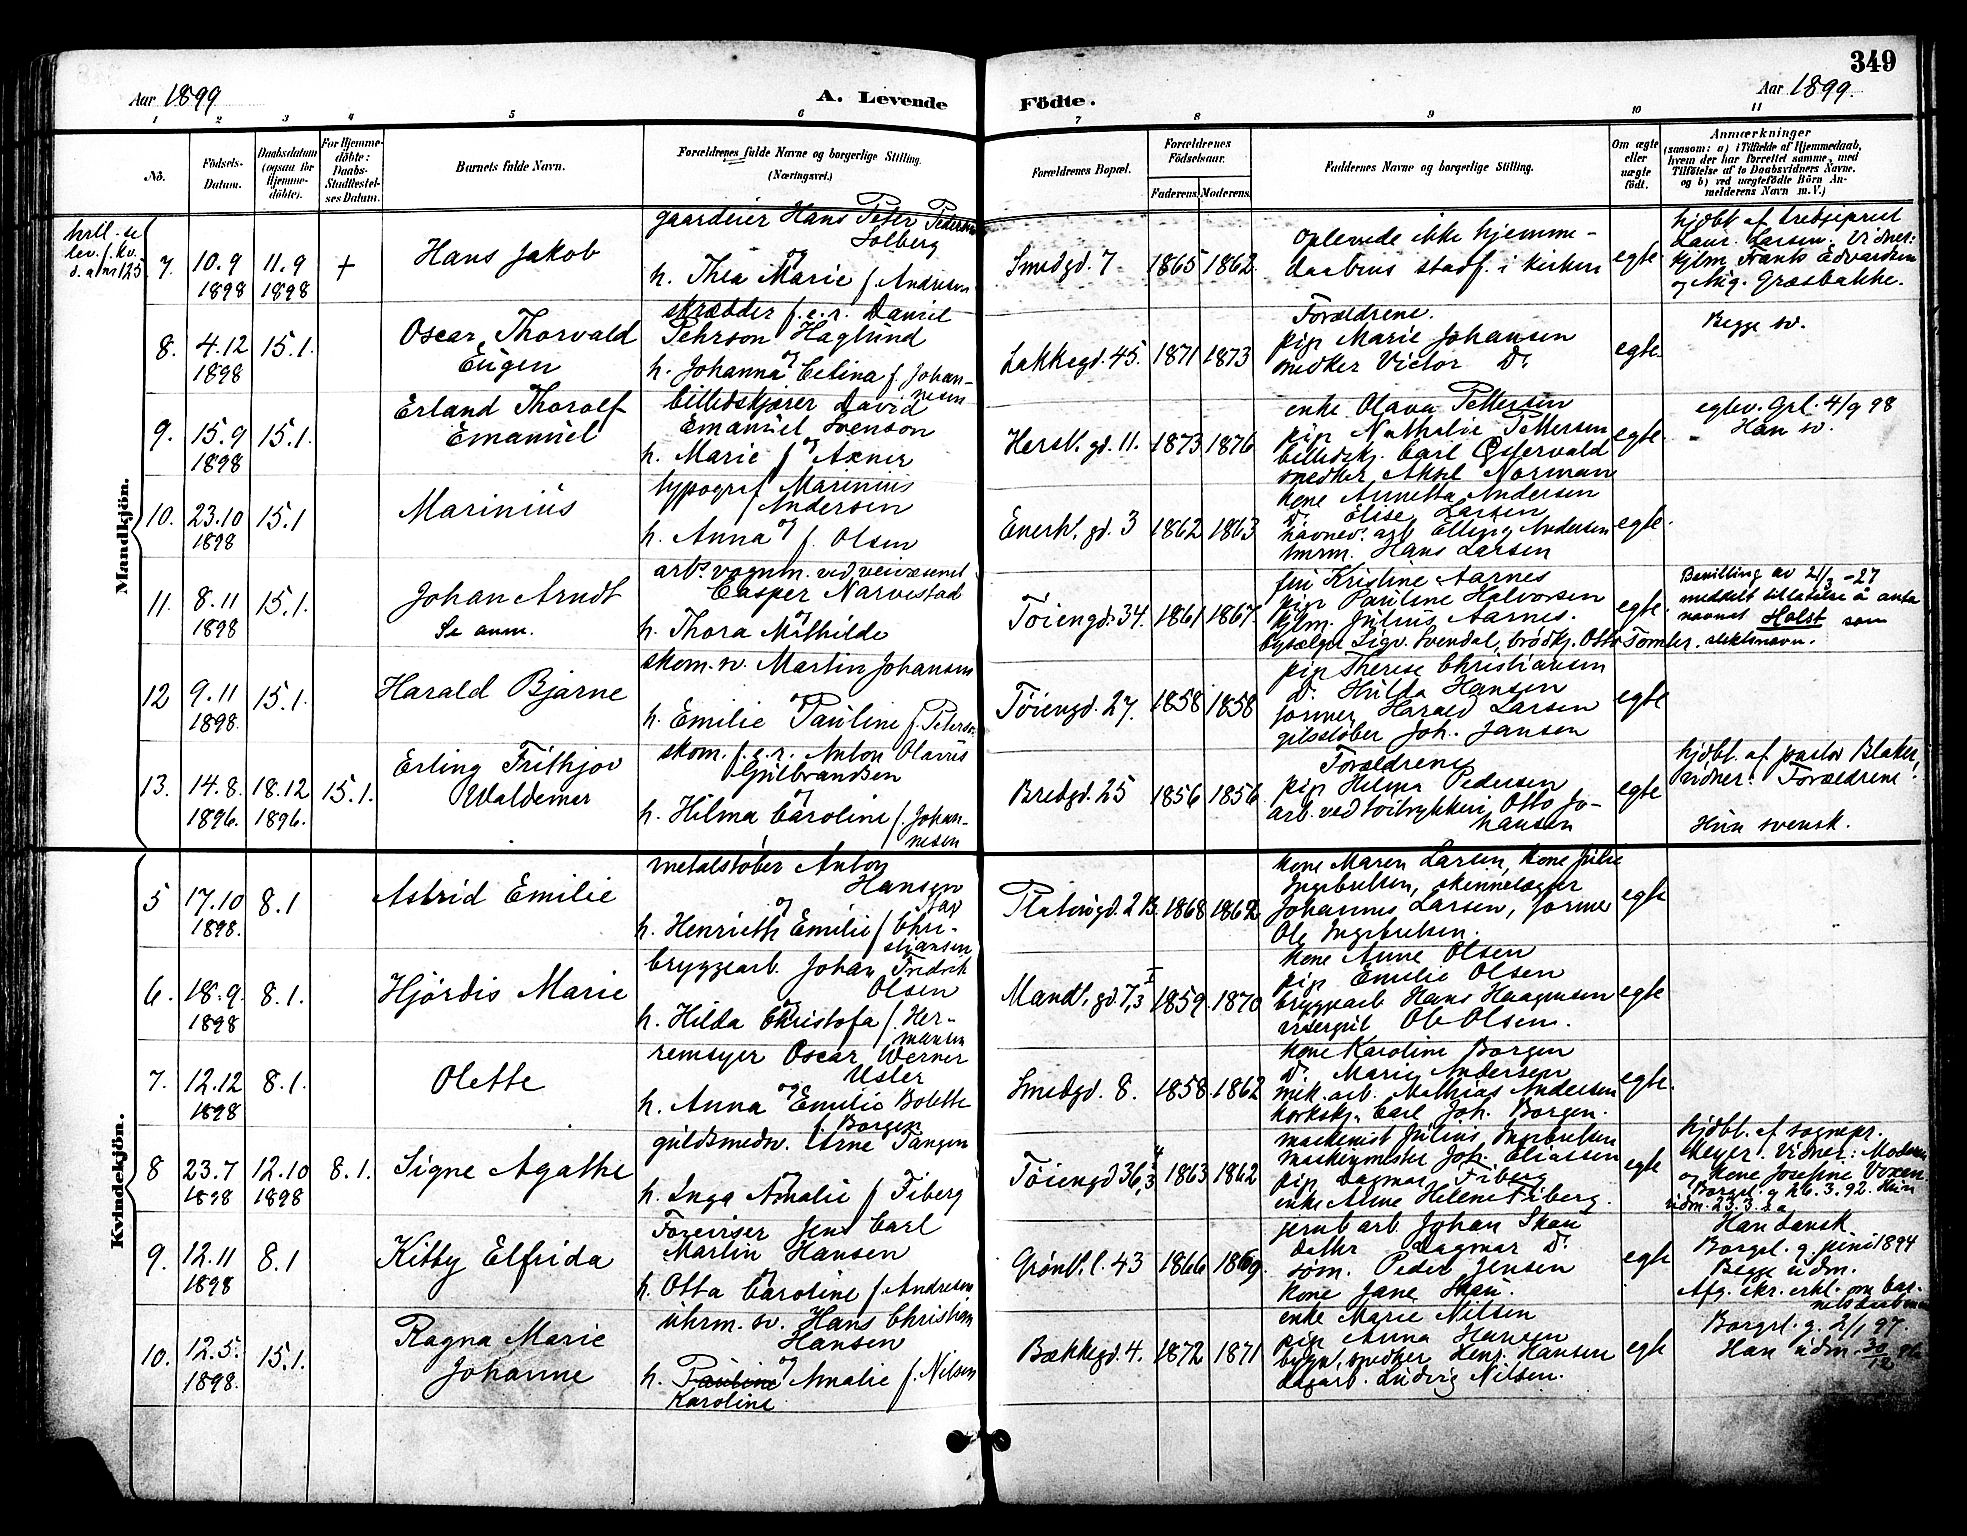 349
Aar 1899
A. Levende Födte.
Aar 1899.
1 2 3 4 5 6 7 8 9 10 11
No.
Födsels-Datum.
Daabsdatum (ogsaa for Hjemme-döbte).
For Hjemme-döbte: Daabs-Stadfæstel-ses Datum.
Barnets fulde Navn.
Forældrenes fulde Navne og borgerlige Stilling. (Næringsvei.)
Forældrenes Bopæl.
Forældrenes Födselsaar.
Faderens. Moderens.
Faddernes Navne og borgerlige Stilling.
Om ægte eller uægte födt.
Anmærkninger
(saasom: a) i Tilfælde af Hjemmedaab, hvem der har forrettet samme, med Tilföielse af to Daabsvidners Navne. og b) ved uægtefödte Börn An-melderens Navn m. V.)
Mandkjön.
7. 10.9 1898 11.9 1898 +
Hans Jakob
gaardeier Hans Peter Pedersen
Solberg
og
h. Thea Marie f. Andresen
Smedgd. 7 1865 1862
Oplevede ikke hjemme-
daabens stadf. i kirken
egte
hjdbt. af
Laur. Larsen. Vidner:
og Aug. Græsbakke.
8. 4.12 1898 15.1.
Oscar Thorvald
Eugen
skrædder f.e.r. Daniel
Pehrson Haglund
og
h. Johanna Cetina f. Johan-
nesen
Lakkegd. 45. 1871 1873
Forældrene.
pige Marie Johansen
snedker Victor Do
egte.
Begge sv.
9. 15.9 1898 15.1.
Erland Thorolf
Emanuel
billedskjærer David
Emanuel Svenson
og
h. Marie f. Axner
Hersl. gd. 11. 1873 1876
enke Olava Pettersen
pige Nathalie Pettersen
billedskj. Carl Østervald
snedker Aksel Norman
egte
egtev. Grl. 4/9 98
Han sv.
10. 23.10 1898 15.1
Marinius
typograf Marinius
Andersen
og
h. Anna f. Olsen
Enerh. gd. 3 1862 1863
kone Annetta Andersen
Do Elise Larsen
tmrm. Hans Larsen
egte.
11. 8.11 1898 15.1.
Johan Arndt
Se anm.
arb. vognm. ved veivæsenet
Casper Narvestad
og
h. Thora Mathilde
Töiengd. 34. 1861 1867.
fru Kristine Aarnes
pige Pauline Halvorsen
kjlm. Julius Aarnes.
Sigv. Svendal, brödkj. Otto Tomter.
egte.
Bevilling av 21/3-27
meddelt tillatelse å anta
navnet Holst som
slektsnavn.
12 9.11 1898. 15.1.
Harald Bjarne
skom. sv. Martin Johansen
og
h. Emilie Pauline f. Peterson
Töiengd. 27. 1858 1858
pige Therese Christiansen
Do Hulda Hansen
former Harald Larsen
gibsstöber Joh. Jansen
egte
13. 14.8. 1896. 18.12 1896. 15.1.
Erling Frithjov
Waldemar
skom. f.e.r. Anton Olavus
Gulbrandsen
og
h. Hilma Caroline f. Johan-
nesen
Bredgd. 25 1856 1856
Forældrene
pige Helga Pedersen
arb. ved töitrykkeri Otto Jo-
hansen
egte
hjdbt. af pastor Blaker,
vidner: Forældrene.
Hun svensk.
Kvindekjön.
5 17.10 1898. 8.1
Astrid Emilie
metalstöber Anton
Hansen
og
h. Henriette Emilie f. Chri-
stiansen
Platougd. 2 B. 1868 1862
kone Maren Larsen, kone Julie
Ingebretsen, skindelægger
Johannes Larsen, former
Ole Ingebretsen.
egte
6. 18.9. 1898 8.1.
Hjördis Marie
bryggearb. Johan Fredrik
Olsen
og
h. Hilda Christofa f. Her-
mansen
Mandl. gd. 7,3 I 1859. 1870
kone Anne Olsen
pige Emilie Olsen
bryggearb Hans Haagensen
visergut Ole Olsen.
egte
7. 12.12 1898 8.1.
Olette
remsyer Oscar Werner
Usler
og
h. Anna Emilie Bolette
Borgen
Smedgd. 8. 1858. 1862
kone Karoline Borgen
Do Marie Andersen
mek. arb. Mathias Andersen
korkskj. Carl Joh. Borgen.
egte.
8 23.7 1898 12.10 1898 8.1.
Signe Agathe
guldsmedsv. Arne Tangen
og
h. Inga Amalie f. Fiberg
Töiengd 36,3 1863 1862
maskinist Julius Ingebretsen
maskinmester Joh. Eliassen
pige Dagmar Fiberg
enke Anne Helene Fiberg.
egte
hjdbt. af sognepr.
Meyer. Vidner: Moderen
og kone Josefine Voxen
Borgrl. g. 26.3.92. Hun
udm. 23.3. s.a.
9. 12.11 1898 8.1
Kitty Elfrida
Foreviser Jens Carl
Martin Hansen
og
h. Otta Caroline f. Andresen
Grönl. l. 43 1866 1869.
jernbarb Johan Skau
datter Dagmar Do
söm. Peder Jensen
kone Jane Skau.
egte
Han dansk
Borgrl. g. juni 1894
Begge udm.
Afg. skr. erkl. om bar-
nets daab
10. 12.5. 1898. 15.1.
Ragna Marie
Johanne
uhrm. sv. Hans Christian
Hansen
og
h. Pauline Amalie f. Nilsen
Karoline
Bækkegd. 4. 1872 1871
enke Marie Nilsen
pige Anna Hansen
bygn. snedker Henr. Hansen
dagarb. Ludvig Nilsen.
egte
Borgrl. g. 2/1 97
Han udm. 30/12 96